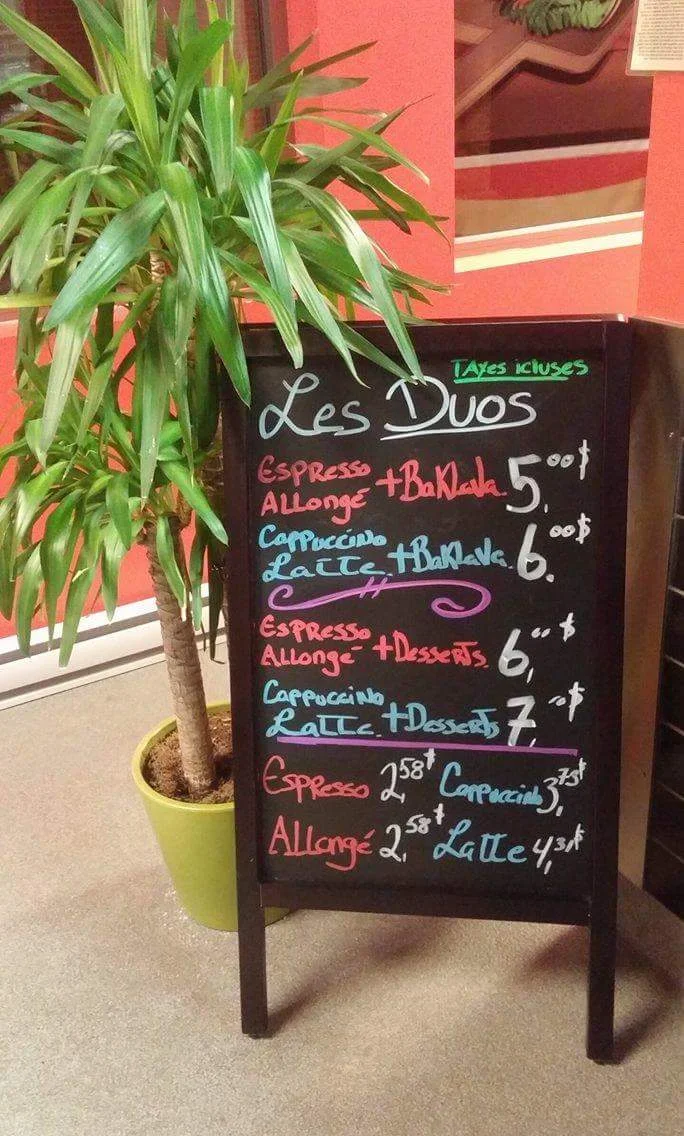 TAXes icluses
Les Duos
ESPRESSO
ALLONGÉ +BaKlava 5,00$
Cappuccino
Latte +BaKlava 6,00$
ESPRESSO
ALLONGÉ +DESSERTS 6,00$
Cappuccino
Latte +DESSERTS 7,00$
Espresso 2,58$ Cappuccino 3,75$
Allongé 2,58$ Latte